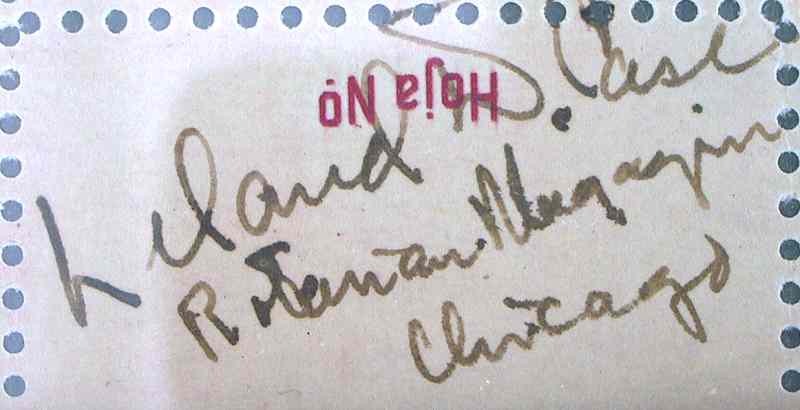 Leland D. Case
Rotarian Magazin
Chicago
Hoja Nº